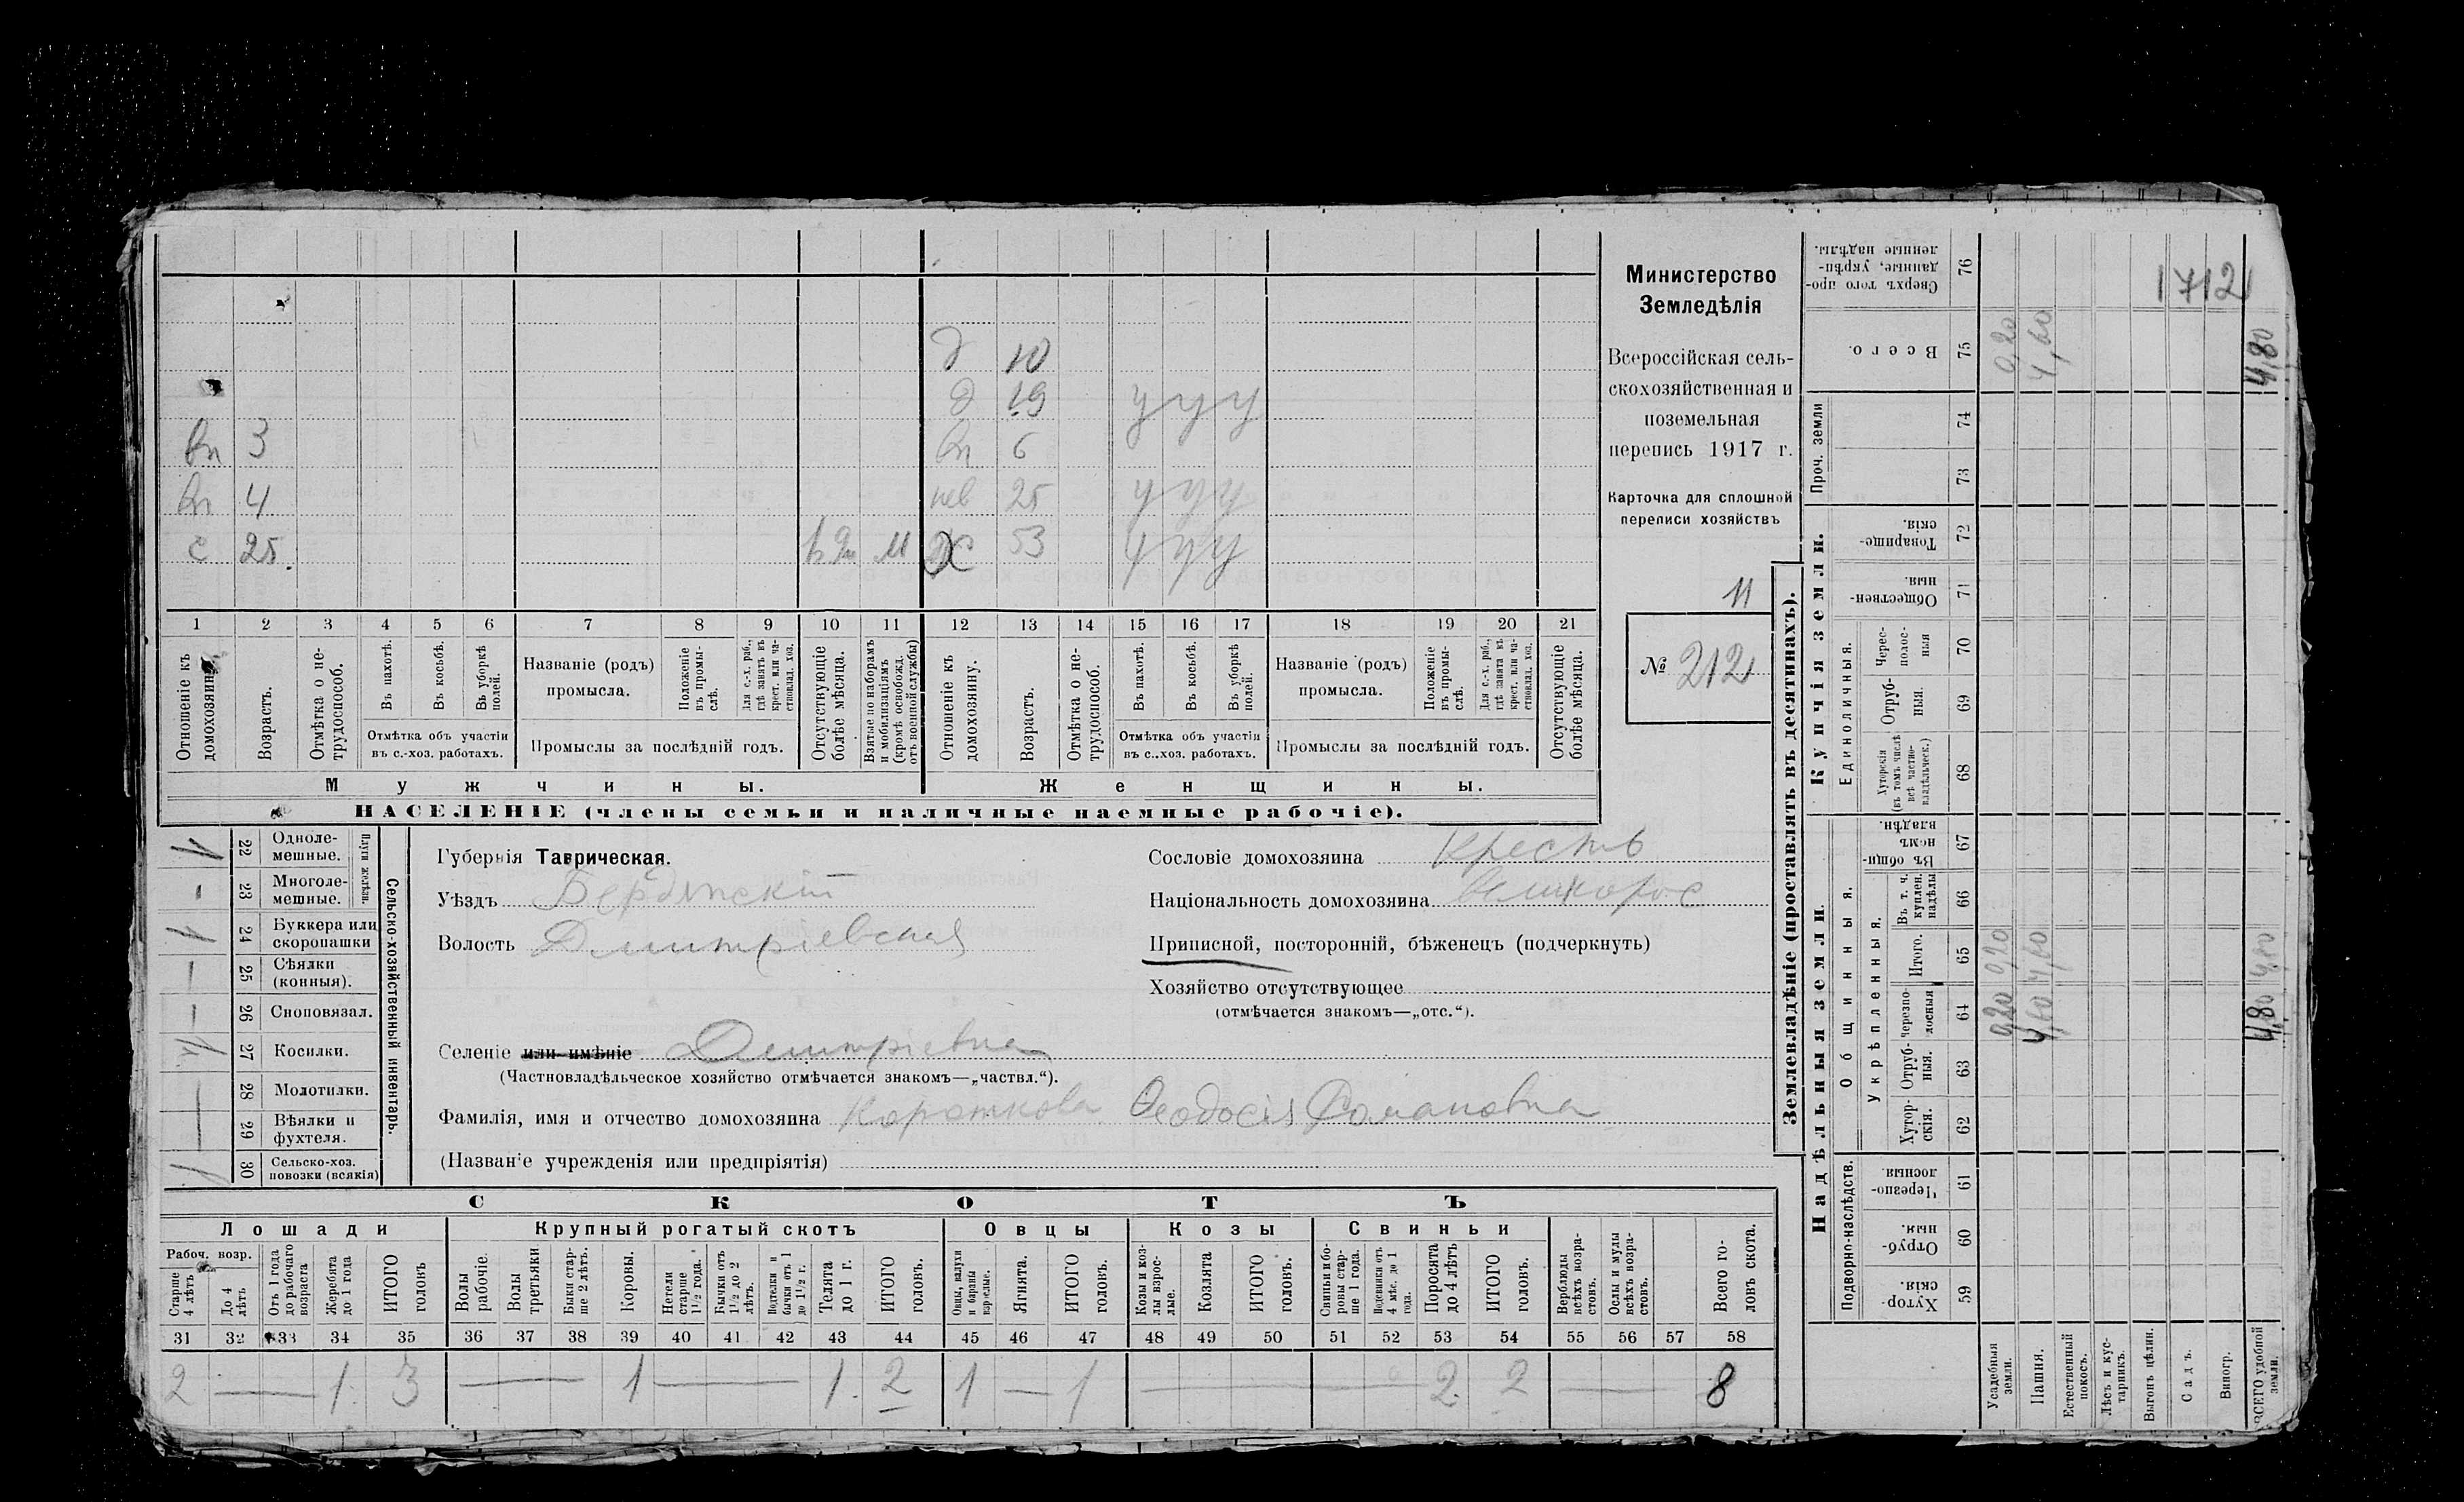 д 10
д 19 у у у
вп 3 вп 6
вп 4 нев 25 у у у
с 25. М Х 53 у у у
1 2 3 4 5 6 7 8 9 10 11 12 13 14 15 16 17 18 19 20 21
Отношеніе къ домохозяину.
Возрастъ.
Отмѣтка о не-
трудоспособ.
Въ пахотѣ.
Въ косьбѣ.
Въ уборкѣ
полей.
Отмѣтка объ участіи
въ с.-хоз. работахъ.
Названіе (родъ)
промысла.
Положеніе
въ промы-
слѣ.
Для с.-х. раб.,
гдѣ занятъ въ
крест. или ча-
стновлад. хоз.
Промыслы за послѣдній годъ.
Отсутствующіе
болѣе мѣсяца.
Взятые по наборамъ
и мобилизаціямъ
(кромѣ освобожд.
отъ военной службы)
Отношеніе къ
домохозяину.
Возрастъ.
Отмѣтка о не-
трудоспособ.
Въ пахотѣ.
Въ косьбѣ.
Въ уборкѣ
полей.
Отмѣтка объ участіи
въ с..хоз. работахъ.
Названіе (родъ)
промысла.
Положеніе
въ промы-
слѣ.
Для с.-х. раб.,
гдѣ занята въ
крест. или ча-
стновлад. хоз.
Промыслы за послѣдній годъ.
Отсутствующіе
болѣе мѣсяца.
Мужчины.
Женщины.
НАСЕЛЕНІЕ (члены семьи и наличные наемные рабочіе).
Министерство
Земледѣлія
Всероссійская сель-
скохозяйственная и
поземельная
перепись 1917 г.
Карточка для сплошной
переписи хозяйствъ
11
№ 212
1 22 Одноле-
мешные.
- 23 Многоле-
мешные.
Плуги желѣзн.
1 24 Буккера или
скоропашки
— 25 Сѣялки
(конныя).
— 26 Сноповязал.
27 Косилки.
— 28 Молотилки.
— 29 Вѣялки и
фухтеля.
1 30 Сельско-хоз.
повозки (всякія)
Сельско-хозяйственный инвентарь.
Губернія Таврическая.
Уѣздъ Бердянскій
Волость Дмитріевская
Сословіе домохозяина Крестъ
Національность домохозяина великорос
Приписной, посторонній, бѣженецъ (подчеркнуть)
Хозяйство отсутствующее
(отмѣчается знакомъ—„отс.“).
Селеніе или имѣніе Дмитріевка
(Частновладѣльческое хозяйство отмѣчается знакомъ—„частвл.“).
Фамилія, имя и отчество домохозяина Короткова Ѳеодосія Романовна
(Названіе учрежденія или предпріятія)
СКОТЪ
Лошади Крупный рогатый скотъ Овцы Козы Свиньи
Рабоч. возр.
Старше
4 лѣтъ
До 4
лѣтъ
Отъ 1 года
до рабочаго
возраста
Жеребята
до 1 года
ИТОГО
головъ
Волы
рабочіе.
Волы
третьяки
Быки стар-
ше 2 лѣтъ.
Коровы.
Нетели
старше
1½ года.
Бычки отъ
1½ до 2
лѣтъ.
Подтелки и
бычки отъ 1
до 1½ г.
Телята
до 1 г.
ИТОГО
головъ.
Овцы, валухи
и бараны
взрослые.
Ягнята.
ИТОГО
головъ.
Козы и коз-
лы взрос-
лые.
Козлята
ИТОГО
головъ.
Свиньи и бо-
ровы стар-
ше 1 года.
Подсвинки отъ
4 мѣс. до 1
года.
Поросята
до 4 лѣтъ
ИТОГО
головъ.
Верблюды
всѣхъ возра-
стовъ.
Ослы и мулы
всѣхъ возра-
стовъ.
Всего го-
ловъ скота.
31 32 33 34 35 36 37 38 39 40 41 42 43 44 45 46 47 48 49 50 51 52 53 54 55 56 57 58
2 — 1 3 — 1 — 1 2 1 — 1 — 2 2 — 8
Землевладѣніе (проставлять въ десятинахъ).
Купчія земли.
Надѣльныя земли.
1712
76 Сверхъ того про-
данные, укрѣп-
ленные надѣлы.
75 Всего. 0,20 4,60 4,80
Проч. земли
74
73
72 Товарище-
скія.
71 Обществен-
ныя.
Единоличныя.
70 Черес-
полос-
ныя
69 Отруб-
ныя.
68 Хуторскія
(въ томъ числѣ
всѣ частно-
владѣльческ.)
67 Въ общи-
номъ
владѣн.
Общинныя.
Укрѣпленныя.
66 Въ т. ч.
куплен.
надѣлы
65 Итого. 0,20 4,60 4,80
64 Черезпо-
лосныя 0,20 4,60 4,80
63 Отруб-
ныя.
62 Хутор-
скія.
Подворно-наслѣдств.
61 Черезпо-
лосныя.
60 Отруб-
ныя.
59 Хутор-
скія.
Усадебныя
земли.
Пашня.
Естественный
покосъ.
Лѣсъ и кус-
тарникъ.
Выгонъ цѣлин.
Садъ.
Виногр.
ВСЕГО удобной
земли.